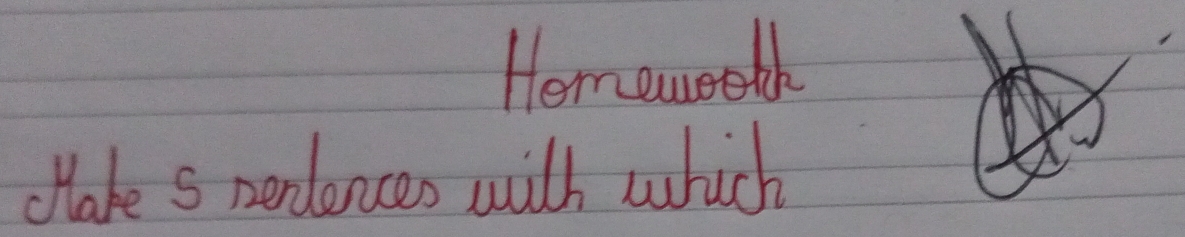 Homework
Make 5 sentences with which